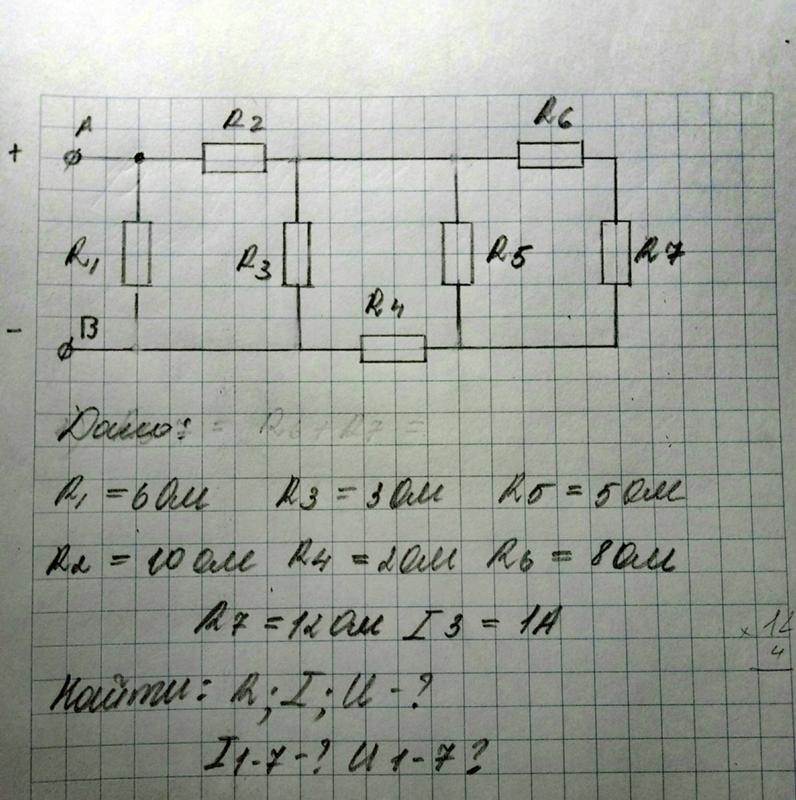 A R2 R6
+
R1 R3 R5 R7
R4
- B
Дано: = R6 + R7 =
R1 = 6 Ом R3 = 3 Ом R5 = 5 Ом
R2 = 10 Ом R4 = 2 Ом R6 = 8 Ом
R7 = 12 Ом I3 = 1А
Найти: R; I; U - ?
I1-7-? U 1-7?